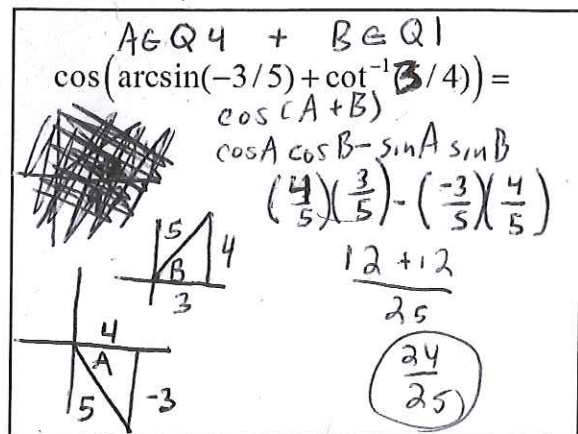 A∈Q4 + B∈Q1
cos(arcsin(-3/5)+cot⁻¹(3/4))=
cos(A+B)
cosA cosB - sinA sinB
(4/5)(3/5) - (-3/5)(4/5)
12 + 12
25
24
25
5
4
B
3
4
A
5
-3